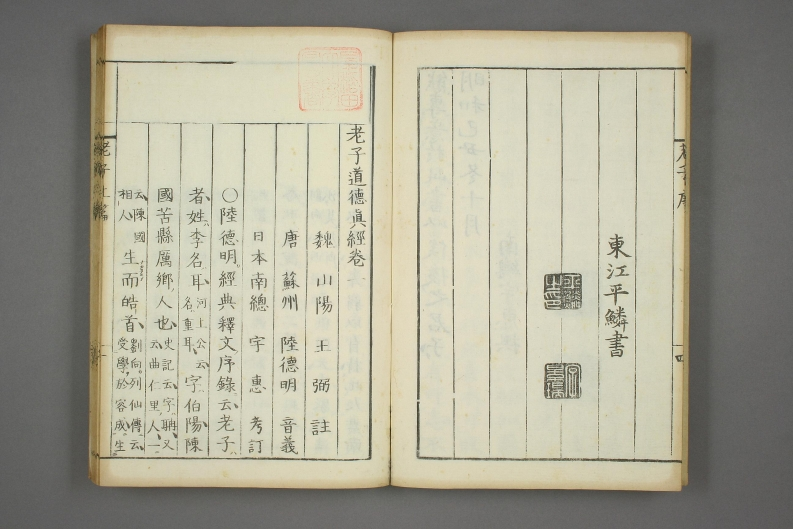 東江平鱗書
老子序
四
老子道德眞經卷一
魏 山陽 王弼 註
唐 蘇州 陸德明 音義
日本南總 宇惠 考訂
○陸德明經典釋文序錄云老子
者姓李名耳河上公云名重耳字伯陽陳
國苦縣厲鄉人也史記云字聃又云曲仁里人一
云陳國相人生而皓首劉向列仙傳云受學於容成生